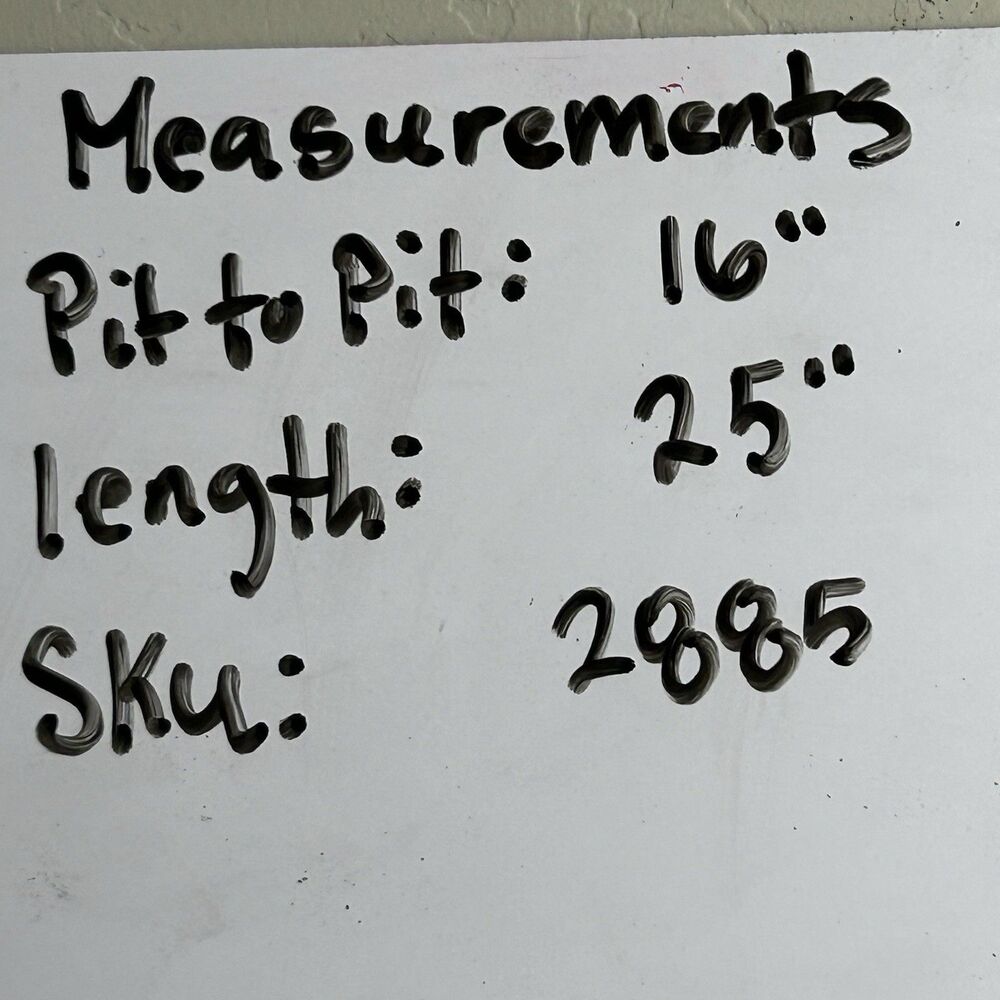 Measurements
Pit to Pit: 16"
length: 25"
SKu: 2885